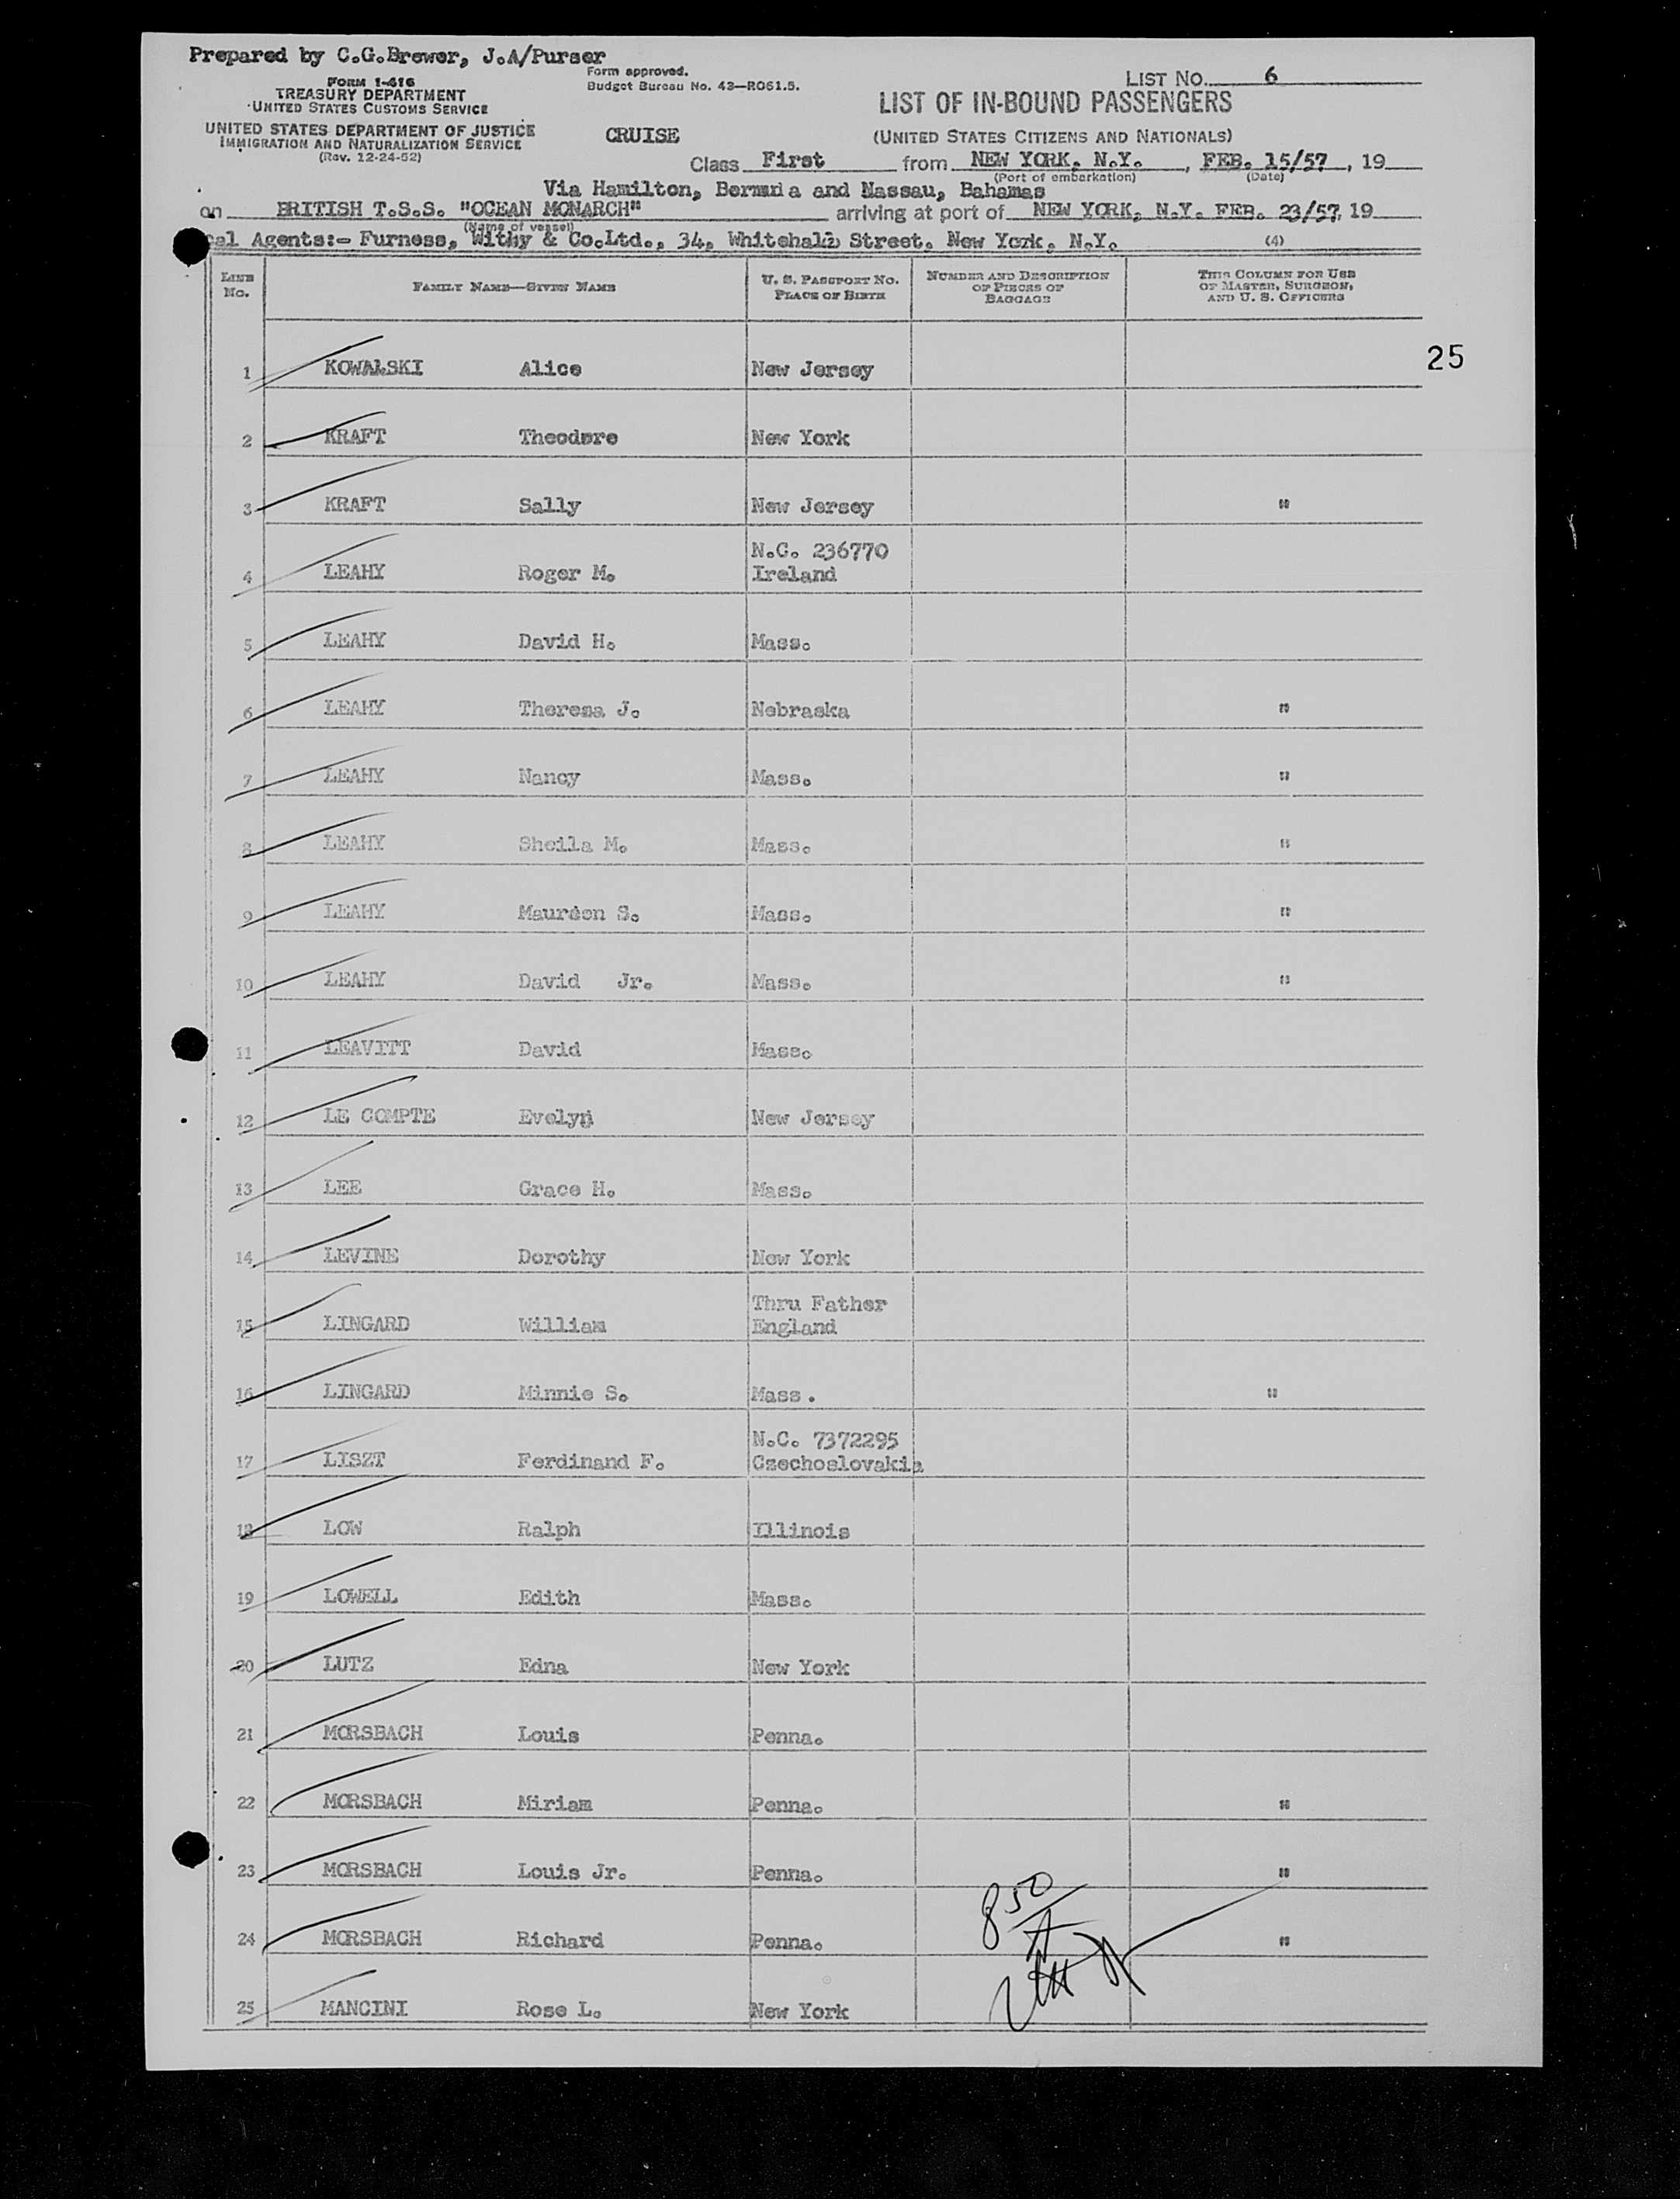 Prepared by C.G.Brewer, J.A/Purser
FORM I-416
TREASURY DEPARTMENT
UNITED STATES CUSTOMS SERVICE
UNITED STATES DEPARTMENT OF JUSTICE
IMMIGRATION AND NATURALIZATION SERVICE
(Rev. 12-24-52)
Form approved.
Budget Bureau No. 43—R061.5.
CRUISE
LIST NO. 6
LIST OF IN-BOUND PASSENGERS
(UNITED STATES CITIZENS AND NATIONALS)
Class First from NEW YORK, N.Y. , FEB. 15/57 , 19
(Port of embarkation) (Date)
Via Hamilton, Bermuda and Nassau, Bahamas
on BRITISH T.S.S. "OCEAN MONARCH" arriving at port of NEW YORK, N.Y. FEB. 23/57, 19
(Name of vessel)
cal Agents:- Furness, Withy & Co.Ltd., 34, Whitehall Street, New York, N.Y. (4)
LINE No. FAMILY NAME—GIVEN NAME U. S. PASSPORT NO. PLACE OF BIRTH NUMBER AND DESCRIPTION OF PIECES OF BAGGAGE THIS COLUMN FOR USE OF MASTER, SURGEON, AND U. S. OFFICERS
25
1 KOWALSKI Alice New Jersey
2 KRAFT Theodore New York
3 KRAFT Sally New Jersey "
N.C. 236770
4 LEAHY Roger M. Ireland
5 LEAHY David H. Mass.
6 LEAHY Theresa J. Nebraska "
7 LEAHY Nancy Mass. "
8 LEAHY Sheila M. Mass. "
9 LEAHY Maureen S. Mass. "
10 LEAHY David Jr. Mass. "
11 LEAVITT David Mass.
12 LE COMPTE Evelyn New Jersey
13 LEE Grace H. Mass.
14 LEVINE Dorothy New York
Thru Father
15 LINGARD William England
16 LINGARD Minnie S. Mass. "
N.C. 7372295
17 LISZT Ferdinand F. Czechoslovakia
18 LOW Ralph Illinois
19 LOWELL Edith Mass.
20 LUTZ Edna New York
21 MORSBACH Louis Penna.
22 MORSBACH Miriam Penna. "
23 MORSBACH Louis Jr. Penna. "
850
24 MORSBACH Richard Penna. "
25 MANCINI Rose L. New York